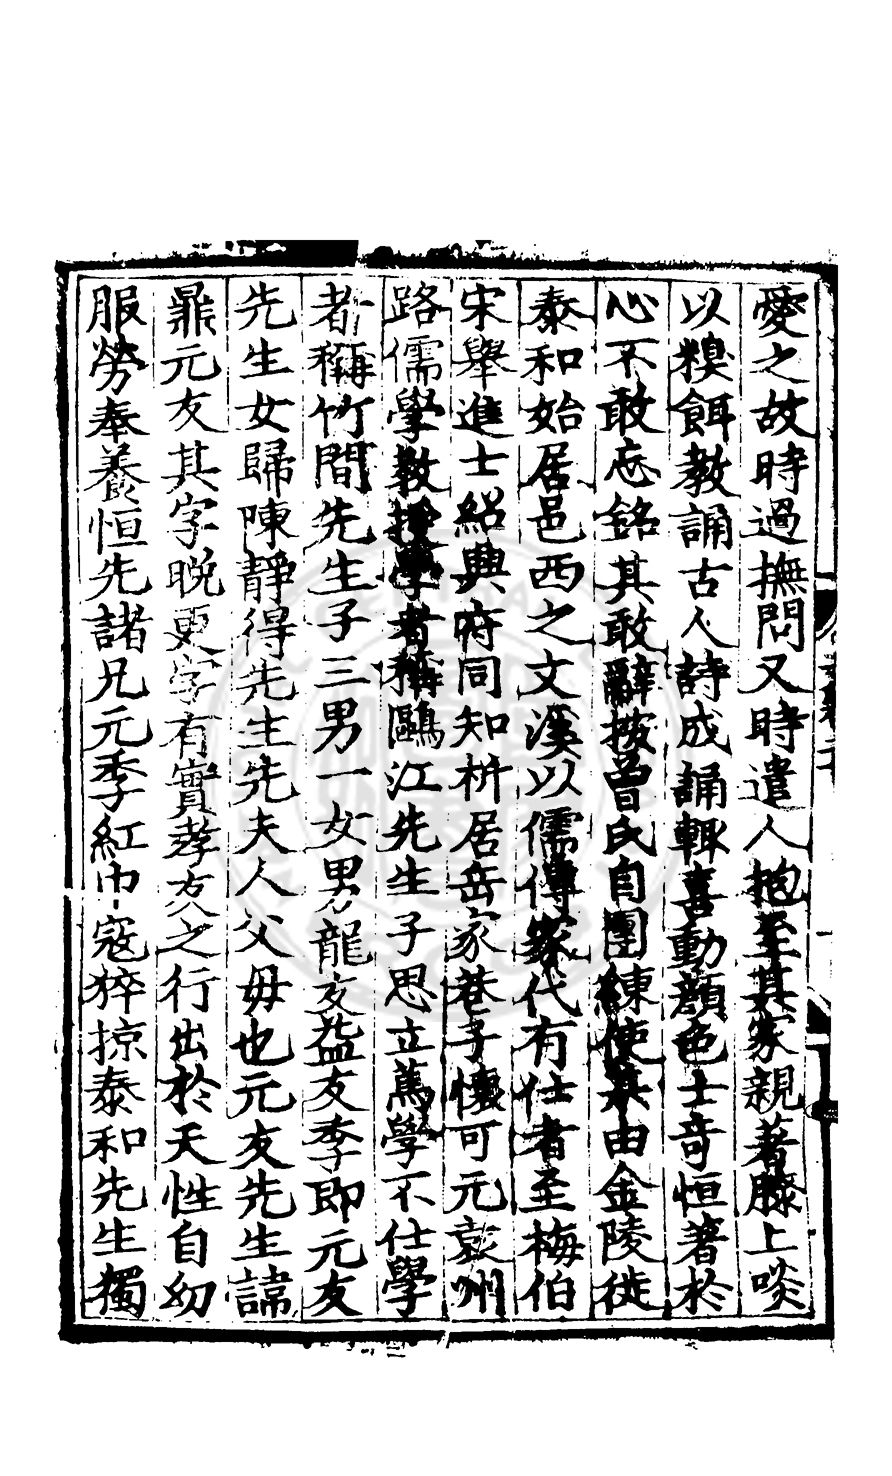 愛之故時過撫問又時遣人抱至其家親著膝上啖
以糗餌教誦古人詩成誦輒喜動顏色士奇恒著於
心不敢忘銘其敢辭按曾氏自團練使真由金陵徙
泰和始居邑西之文溪以儒傳家代有仕者至梅伯
宋舉進士紹興府同知析居岳家巷子懷可元袁州
路儒學教授學者稱鷗江先生子思立萬學不仕學
者稱竹間先生子三男一女男龍友益友季即元友
先生女歸陳靜得先生先夫人父毋也元友先生諱
鼎元友其字晚更字有實孝友之行出於天性自幼
服勞奉養恒先諸兄元季紅巾寇猝掠泰和先生獨